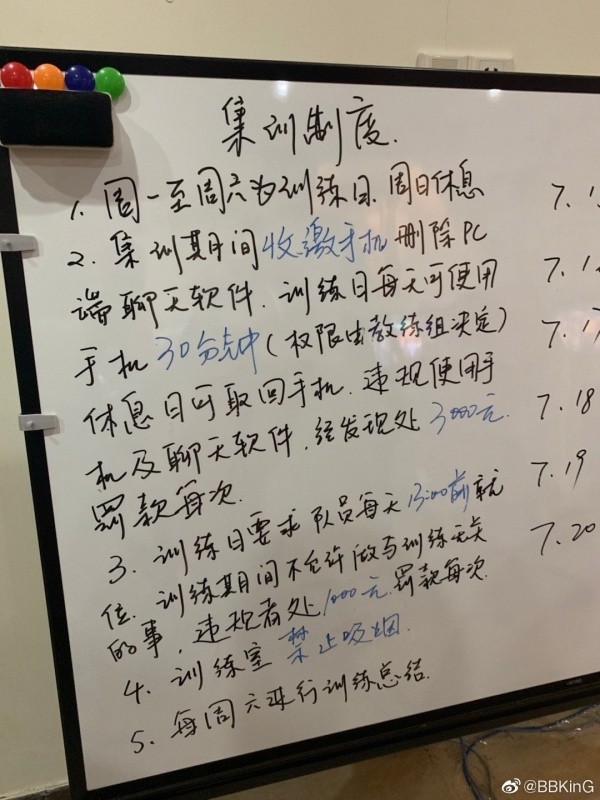 集训制度.
1. 周一至周六为训练日.周日休息
2. 集训期间收缴手机 删除PC
端聊天软件. 训练日每天可使用
手机30分钟(权限由教练组决定)
休息日可取回手机. 违规使用手
机及聊天软件, 经发现处3000元.
罚款每次.
3. 训练日要求队员每天13:00前就
位. 训练期间不允许做与训练无关
的事, 违规者处1000元.罚款每次.
4. 训练室 禁止吸烟.
5. 每周六进行训练总结.
7.1
7.1
7.17
7.18
7.19
7.20
@BBKinG